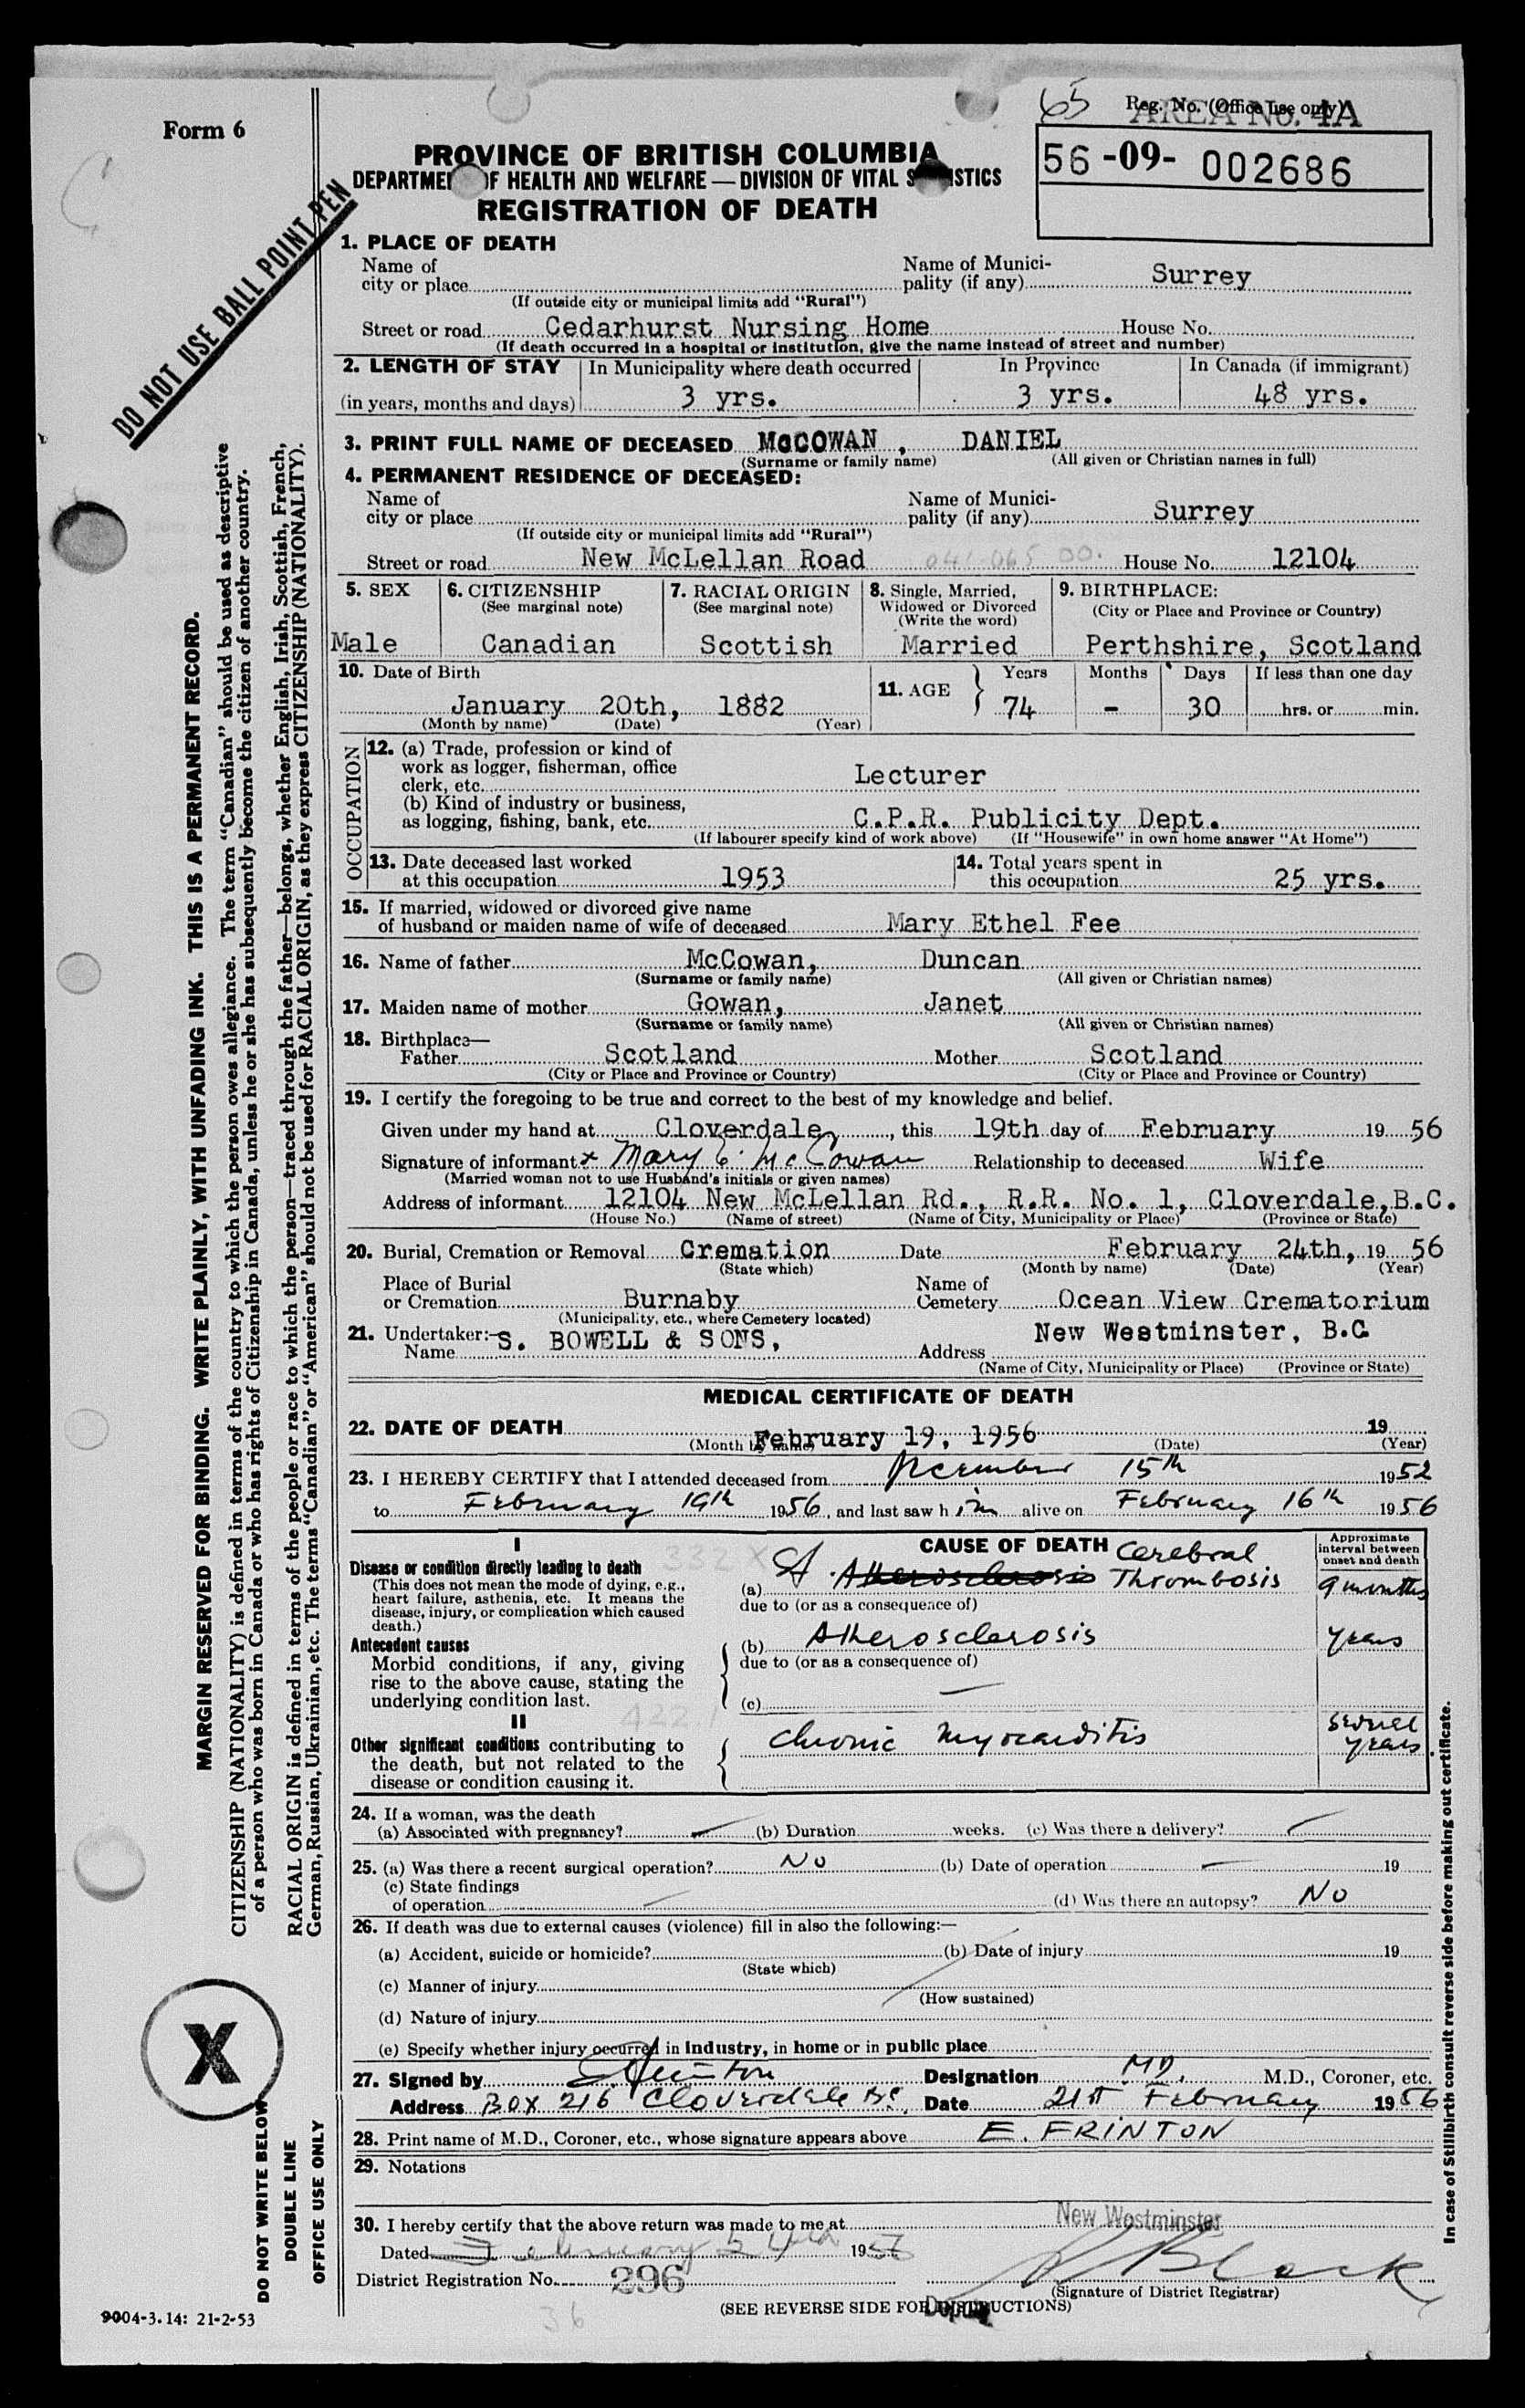 Form 6
65
Reg. No. (Office use only)
AREA No. 4A
56 -09- 002686
PROVINCE OF BRITISH COLUMBIA
DEPARTMENT OF HEALTH AND WELFARE — DIVISION OF VITAL STATISTICS
REGISTRATION OF DEATH
DO NOT USE BALL POINT PEN
1. PLACE OF DEATH
Name of city or place
Name of Municipality (if any) Surrey
(If outside city or municipal limits add "Rural")
Street or road Cedarhurst Nursing Home House No.
(If death occurred in a hospital or institution, give the name instead of street and number)
2. LENGTH OF STAY In Municipality where death occurred In Province In Canada (if immigrant)
(in years, months and days) 3 yrs. 3 yrs. 48 yrs.
3. PRINT FULL NAME OF DECEASED McCOWAN , DANIEL
(Surname or family name) (All given or Christian names in full)
4. PERMANENT RESIDENCE OF DECEASED:
Name of city or place
Name of Municipality (if any) Surrey
(If outside city or municipal limits add "Rural")
Street or road New McLellan Road 041-065 00. House No. 12104
5. SEX 6. CITIZENSHIP (See marginal note) 7. RACIAL ORIGIN (See marginal note) 8. Single, Married, Widowed or Divorced (Write the word) 9. BIRTHPLACE: (City or Place and Province or Country)
Male Canadian Scottish Married Perthshire, Scotland
10. Date of Birth 11. AGE Years Months Days If less than one day
January 20th, 1882 74 - 30 hrs. or min.
(Month by name) (Date) (Year)
OCCUPATION
12. (a) Trade, profession or kind of
work as logger, fisherman, office
clerk, etc. Lecturer
(b) Kind of industry or business,
as logging, fishing, bank, etc. C.P.R. Publicity Dept.
(If labourer specify kind of work above) (If "Housewife" in own home answer "At Home")
13. Date deceased last worked at this occupation 1953
14. Total years spent in this occupation 25 yrs.
15. If married, widowed or divorced give name
of husband or maiden name of wife of deceased Mary Ethel Fee
16. Name of father McCowan, Duncan
(Surname or family name) (All given or Christian names)
17. Maiden name of mother Gowan, Janet
(Surname or family name) (All given or Christian names)
18. Birthplace—
Father Scotland Mother Scotland
(City or Place and Province or Country) (City or Place and Province or Country)
19. I certify the foregoing to be true and correct to the best of my knowledge and belief.
Given under my hand at Cloverdale, this 19th day of February 19 56
Signature of informant x Mary E. McCowan Relationship to deceased Wife
(Married woman not to use Husband's initials or given names)
Address of informant 12104 New McLellan Rd., R.R. No. 1, Cloverdale, B.C.
(House No.) (Name of street) (Name of City, Municipality or Place) (Province or State)
20. Burial, Cremation or Removal Cremation Date February 24th, 19 56
(State which) (Month by name) (Date) (Year)
Place of Burial or Cremation Burnaby Name of Cemetery Ocean View Crematorium
(Municipality, etc., where Cemetery located)
21. Undertaker:— Name S. BOWELL & SONS, Address New Westminster, B.C.
(Name of City, Municipality or Place) (Province or State)
MEDICAL CERTIFICATE OF DEATH
22. DATE OF DEATH February 19, 1956 19
(Month by name) (Date) (Year)
23. I HEREBY CERTIFY that I attended deceased from December 15th 1952
to February 19th 1956, and last saw him alive on February 16th 1956
I CAUSE OF DEATH Approximate interval between onset and death
332 X
Disease or condition directly leading to death
(This does not mean the mode of dying, e.g., heart failure, asthenia, etc. It means the disease, injury, or complication which caused death.)
(a) Atherosclerosis Cerebral Thrombosis 9 months
due to (or as a consequence of)
Antecedent causes
Morbid conditions, if any, giving rise to the above cause, stating the underlying condition last.
(b) Atherosclerosis years
due to (or as a consequence of)
(c) —
422.1
II
Other significant conditions contributing to the death, but not related to the disease or condition causing it.
Chronic Myocarditis several years
24. If a woman, was the death
(a) Associated with pregnancy? (b) Duration weeks. (c) Was there a delivery?
25. (a) Was there a recent surgical operation? No (b) Date of operation 19
(c) State findings
of operation (d) Was there an autopsy? No
26. If death was due to external causes (violence) fill in also the following:—
(a) Accident, suicide or homicide? (b) Date of injury 19
(State which)
(c) Manner of injury
(How sustained)
(d) Nature of injury
(e) Specify whether injury occurred in Industry, in home or in public place
27. Signed by EFrinton Designation MD. M.D., Coroner, etc.
Address Box 216 Cloverdale BC. Date 21st February 1956
28. Print name of M.D., Coroner, etc., whose signature appears above E. FRINTON
29. Notations
30. I hereby certify that the above return was made to me at New Westminster
Dated February 24th 1956
District Registration No. 296 Black
(Signature of District Registrar)
Deputy
36
(SEE REVERSE SIDE FOR INSTRUCTIONS)
9004-3.14: 21-2-53
MARGIN RESERVED FOR BINDING. WRITE PLAINLY, WITH UNFADING INK. THIS IS A PERMANENT RECORD.
CITIZENSHIP (NATIONALITY) is defined in terms of the country to which the person owes allegiance. The term "Canadian" should be used as descriptive
of a person who was born in Canada or who has rights of Citizenship in Canada, unless he or she has subsequently become the citizen of another country.
RACIAL ORIGIN is defined in terms of the people or race to which the person—traced through the father—belongs, whether English, Irish, Scottish, French,
German, Russian, Ukrainian, etc. The terms "Canadian" or "American" should not be used for RACIAL ORIGIN, as they express CITIZENSHIP (NATIONALITY).
X
DO NOT WRITE BELOW
DOUBLE LINE
OFFICE USE ONLY
In case of Stillbirth consult reverse side before making out certificate.